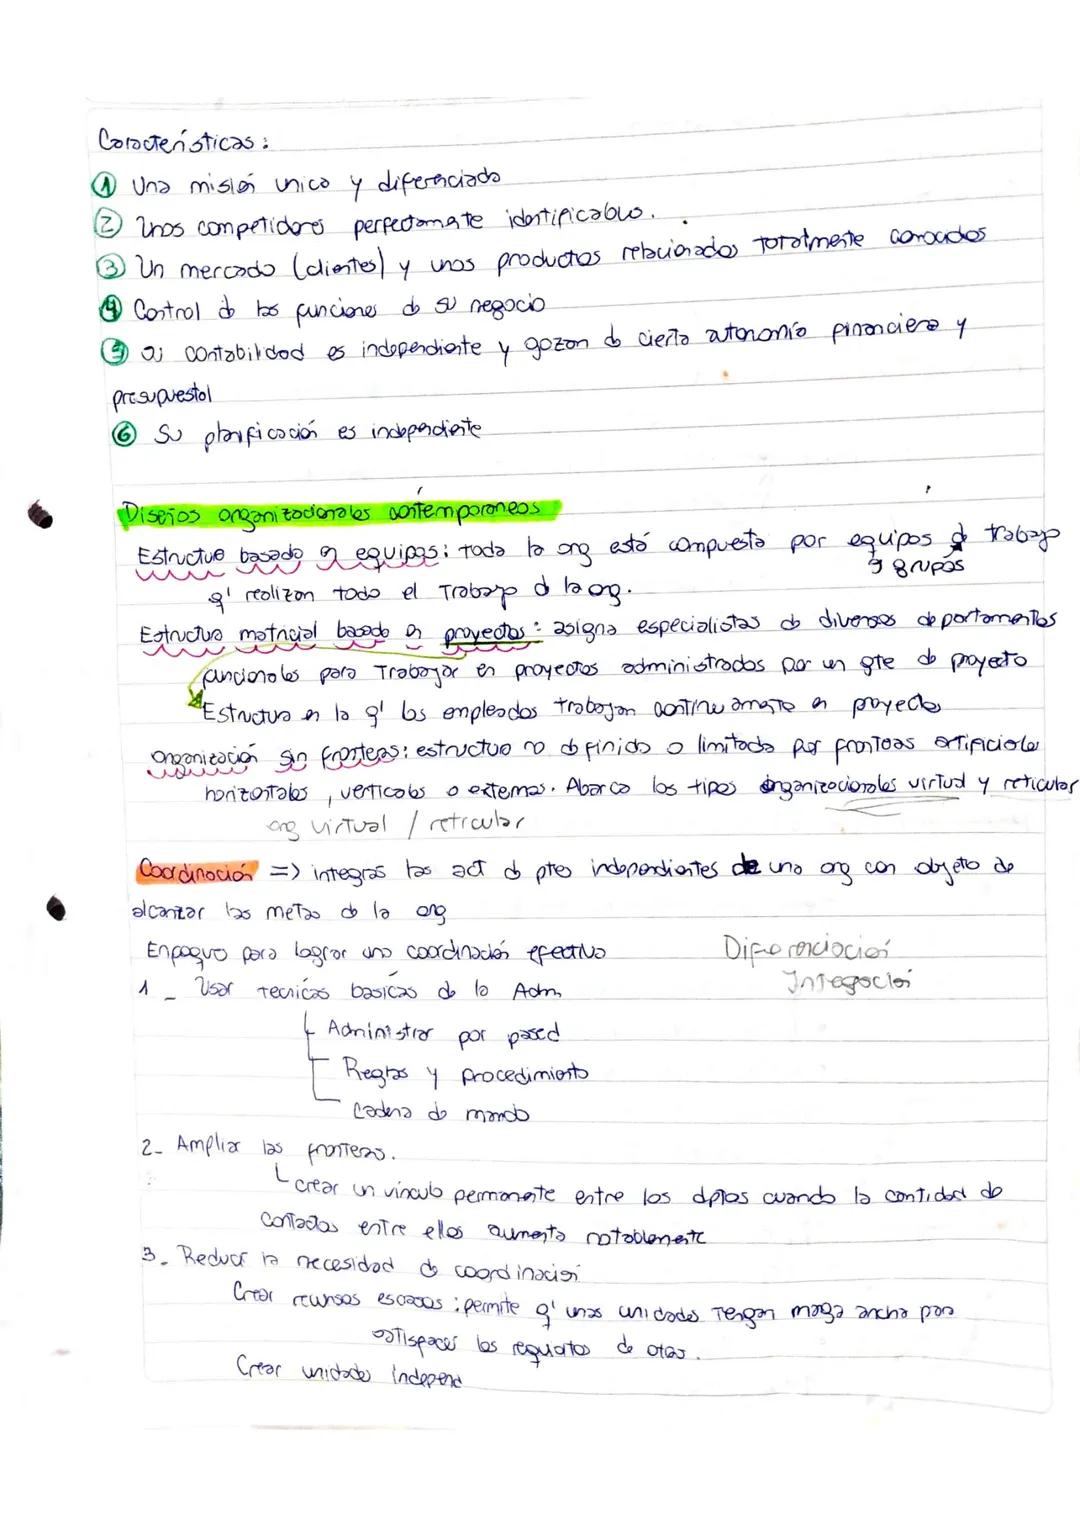 Características:
① Una misión unica y diferenciada
② Unos competidores perfectamente identificables.
③ Un mercado (clientes) y unos productos relacionados totalmente conocidos
④ Control d las funciones d su negocio
⑤ contabilidad es independiente y gozan d cierta autonomía financiera y
presupuestal
⑥ Su planificación es independiente
Diseños organizacionales contemporaneos
Estructura basada en equipos: toda la org está compuesta por equipos d trabajo
grupos
q' realizan todo el trabajo d la org.
Estructura matricial basada en proyectos: asigna especialistas de diversos departamentos
funcionales para trabajar en proyectos administrados por un gte de proyecto
Estructura en la q' los empleados trabajan continuamente en proyectos
organización sin fronteras: estructura no definida o limitada por fronteras artificiales
horizontales, verticales o externas. Abarca los tipos organizacionales virtual y reticular
org virtual / reticular
Coordinación => integras las act d ptes independientes de una org con objeto de
alcanzar las metas de la org
Enfoques para lograr una coordinación efectiva
Diferenciación
Integración
1 - Usar tecnicas basicas de la Adm
Administrar por
Reglas y procedimiento
Cadena de mando
2- Ampliar las fronteras.
crear un vinculo permanente entre los dptos cuando la cantidad de
contactos entre ellos aumenta notablemente
3- Reducir la necesidad de coordinación
Crear recursos escasos: permite q' unas unidades tengan manga ancha para
satisfacer los de otras.
Crear unidades independ